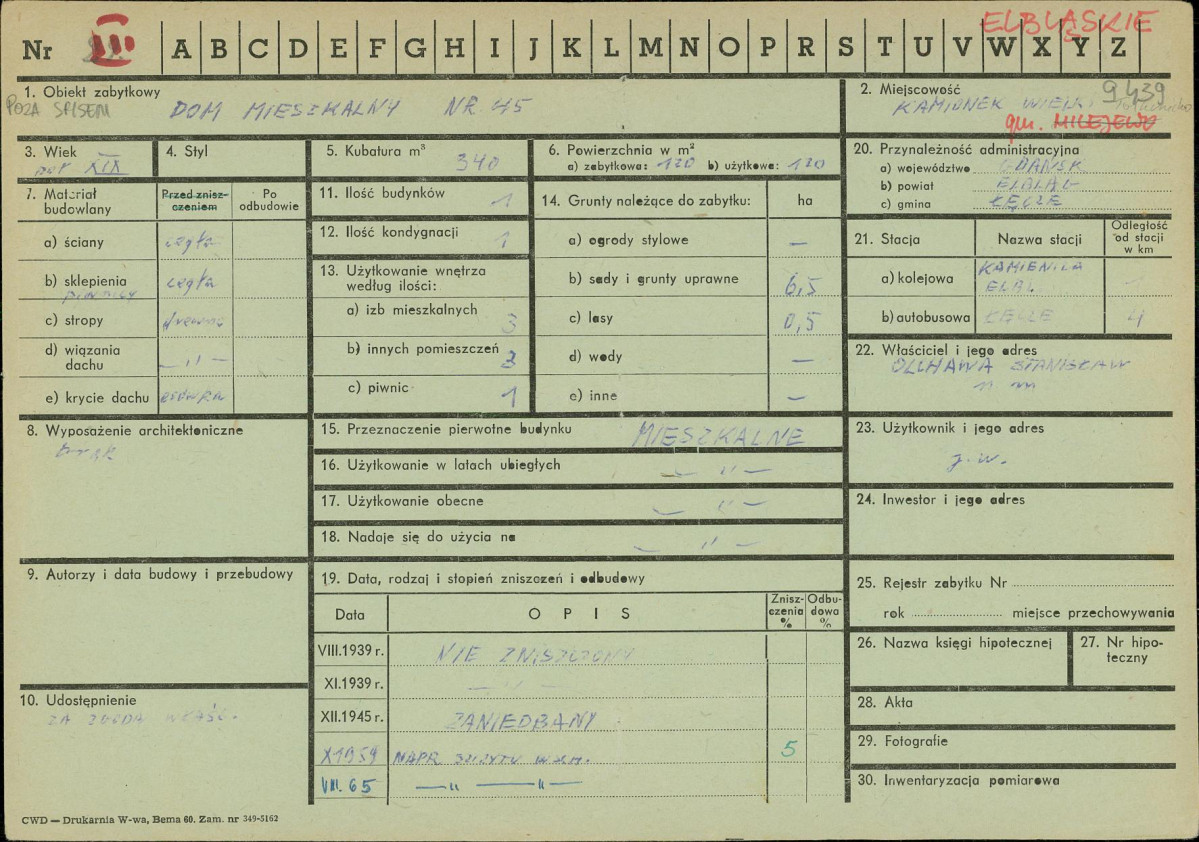 ELBLĄSKIE
Nr III A B C D E F G H I J K L M N O P R S T U V W X Y Z
1. Obiekt zabytkowy
POZA SPISEM
DOM MIESZKALNY NR. 45
2. Miejscowość
9439
KAMIONEK WIELKI
gm. MILEJEWO
3. Wiek
XIX
4. Styl
5. Kubatura m³
340
6. Powierzchnia w m²
a) zabytkowa: 120 b) użytkowa: 120
20. Przynależność administracyjna
a) województwo GDAŃSK
b) powiat ELBLĄG
c) gmina ŁĘCZE
7. Materiał budowlany
Przed zniszczeniem
Po odbudowie
a) ściany cegła
b) sklepienia cegła
piwnicy
c) stropy drewno
d) wiązania dachu — „ —
e) krycie dachu
11. Ilość budynków 1
12. Ilość kondygnacji 1
13. Użytkowanie wnętrza według ilości:
a) izb mieszkalnych 3
b) innych pomieszczeń 3
c) piwnic 1
14. Grunty należące do zabytku: ha
a) ogrody stylowe —
b) sady i grunty uprawne 6,5
c) lasy 0,5
d) wody —
e) inne —
21. Stacja
Nazwa stacji
Odległość od stacji w km
a) kolejowa KAMIENICA ELBL. 1
b) autobusowa ŁĘCZE 4
22. Właściciel i jego adres
OLCHAWA STANISŁAW
8. Wyposażenie architektoniczne
brak
15. Przeznaczenie pierwotne budynku MIESZKALNE
16. Użytkowanie w latach ubiegłych — „ —
17. Użytkowanie obecne — „ —
18. Nadaje się do użycia na — „ —
23. Użytkownik i jego adres
j.w.
24. Inwestor i jego adres
9. Autorzy i data budowy i przebudowy
19. Data, rodzaj i stopień zniszczeń i odbudowy
Data
O P I S
Zniszczenia %
Odbudowa %
VIII.1939 r. NIE ZNISZCZONY
XI.1939 r. — „ —
XII.1945 r. ZANIEDBANY
X 1959 NAPR. SZCZYTU WSCH. 5
VIII. 65 — „ — „ —
25. Rejestr zabytku Nr
rok miejsce przechowywania
26. Nazwa księgi hipotecznej
27. Nr hipoteczny
28. Akta
29. Fotografie
30. Inwentaryzacja pomiarowa
10. Udostępnienie
ZA ZGODĄ WŁAŚC.
CWD — Drukarnia W-wa, Bema 60. Zam. nr 349-5162